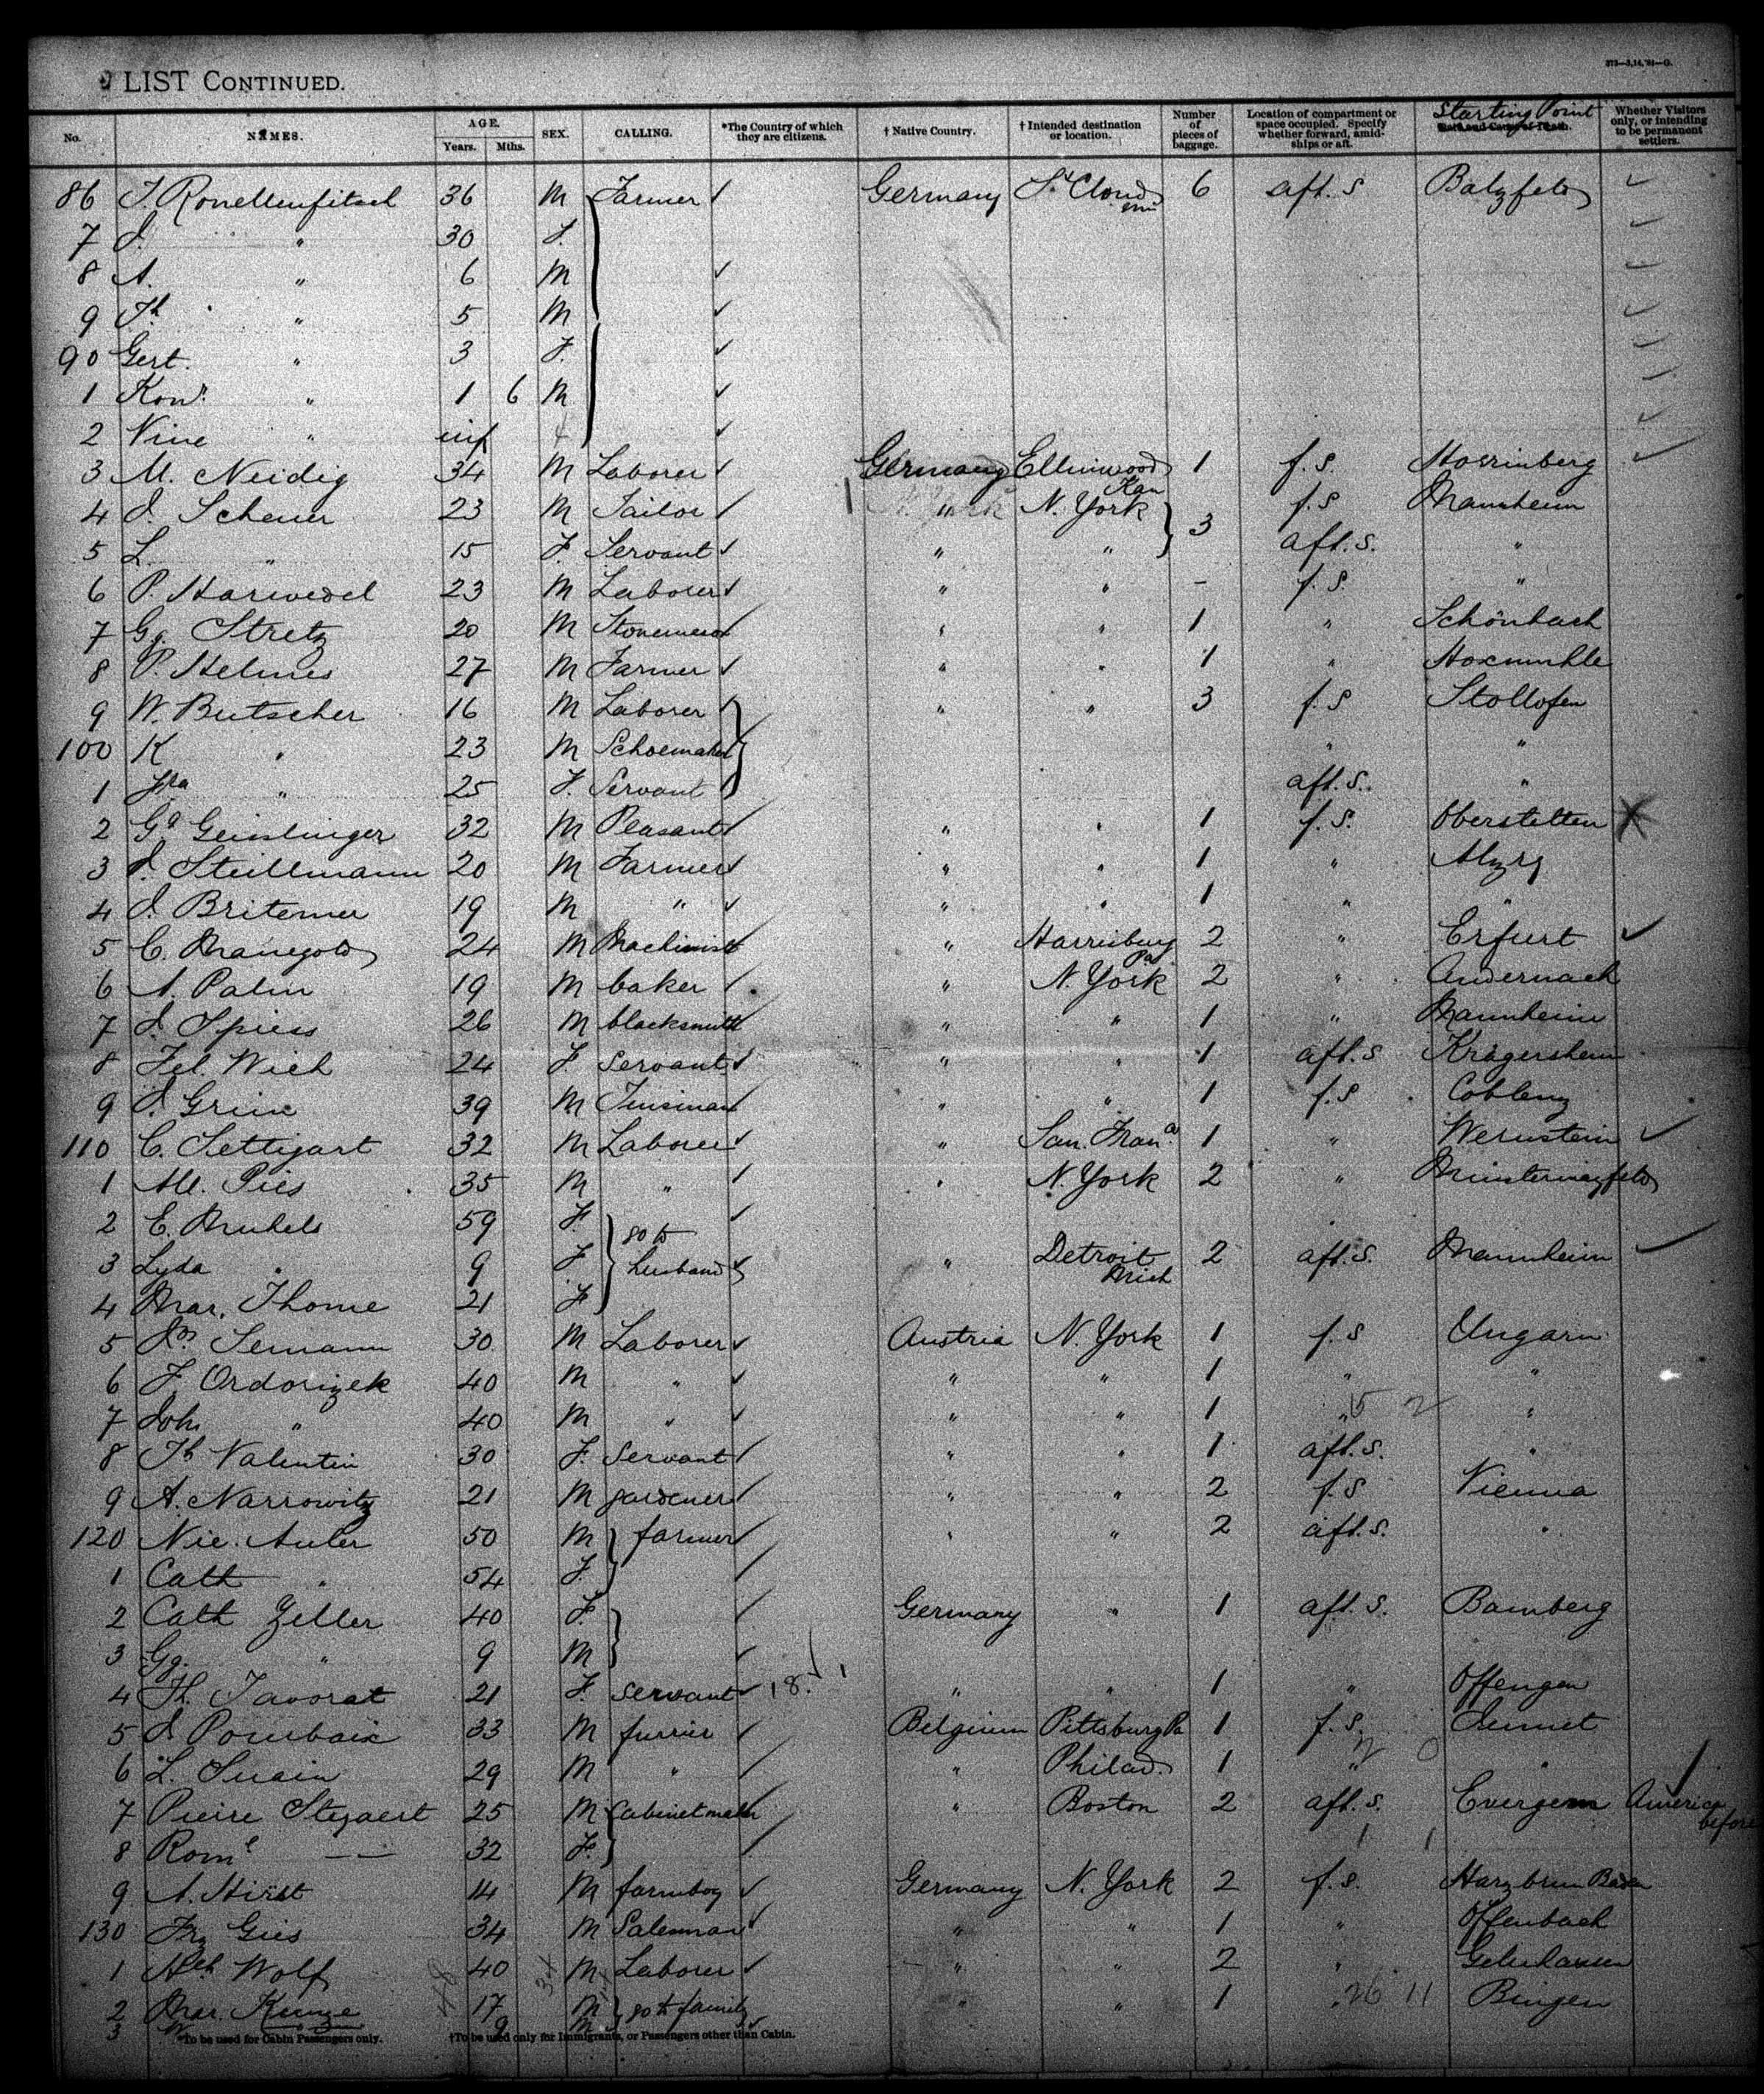 LIST CONTINUED.
273—3,14,'91—G.
No. NAMES. AGE. Years. Mths. SEX. CALLING. *The Country of which they are citizens. † Native Country. † Intended destination or location. Number of pieces of baggage. Location of compartment or space occupied. Specify whether forward, amidships or aft. Starting Point Whether Visitors only, or intending to be permanent settlers.
86 J. Ronellenfitsch 36 M Farmer Germany St Cloud 6 aft. S Balzfeld
7 J. " 30 F.
8 A. " 6 M
9 Th " 5 M
90 Gert. " 3 F.
1 Konr. " 1 6 M
2 Nine " inf f
3 M. Neidig 34 M Laborer Germany Ellinwood Kan 1 f. S.
4 J. Scheuer 23 M Tailor " N. York 3 f. S Mannheim
5 L. " 15 F. Servant " " aft. S. "
6 P. Harwedel 23 M Laborer " " – f. S. "
7 Gg. Stretz 20 M " " 1 " Schönbach
8 P. Helmes 27 M Farmer " " 1 "
9 W. Butscher 16 M Laborer " " 3 f. S Stollofen
100 K " 23 M Schoemaker " "
1 " 25 F. Servant aft. S. "
2 Gg Geislinger 32 M Peasant " " 1 f. S. Oberstetten
3 J. Steillmann 20 M Farmer " " 1 "
4 J. Britemer 19 M " " " 1 " "
5 C. Manegold 24 M Machinist " Harrisburg Pa 2 " Erfurt
6 A. Palm 19 M baker " N. York 2 " Andernach
7 J. Spiess 26 M blacksmith " " 1 " Mannheim
8 Fel. Wich 24 F servant " " 1 aft. S Krägersheim
9 J. Grim 39 M " " 1 f. S Coblenz
110 C. Settigart 32 M Laborer " San. Fran. 1 " Wernstein
1 All. Pies 35 M " " N. York 2 " Münstermayfeld
2 E. 59 F. go to
3 Lyda " 9 F husband " Detroit Mich 2 aft. S. Mannheim
4 Mar. Thome 21 F
5 Semann 30 M Laborer Austria N. York 1 f. S Ungarn
6 F. Ordorizek 40 M " " " 1 " "
7 Joh. " 40 M " " " 1 " 5 2 "
8 Th Valentin 30 F. servant " " 1 aft. S. "
9 A. Narrowitz 21 M gardener " " 2 f. S Vienna
120 Nic. Auler 50 M farmer " " 2 aft. S. "
1 Cath " 54 F.
2 Cath Zeller 40 F. Germany " 1 aft. S. Bamberg
3 Gg. " 9 M
4 Th. Tavorat 21 F. servant 18. " " 1 " Offengen
5 J Pourbaix 33 M furrier Belgium Pittsburg Pa 1 f. S. Jumet
6 L. Suain 29 M " " Philad. 1 " "
7 Pierre Stegaert 25 M Cabinetmaker " Boston 2 aft. S. Evergem America before
8 Rom — — 32 F. 1 1
9 A. Hirst 14 M farmboy Germany N. York 2 f. S. Baden
130 Frz Gies 34 M Salesman " " 1 " Offenbach
1 Wolf 40 M Laborer " " 2 " Gelnhausen
2 Mar. Kunze 17 M go to family " " 1 " 26 11 Bingen
3 9 M
*To be used for Cabin Passengers only. †To be used only for Immigrants, or Passengers other than Cabin.